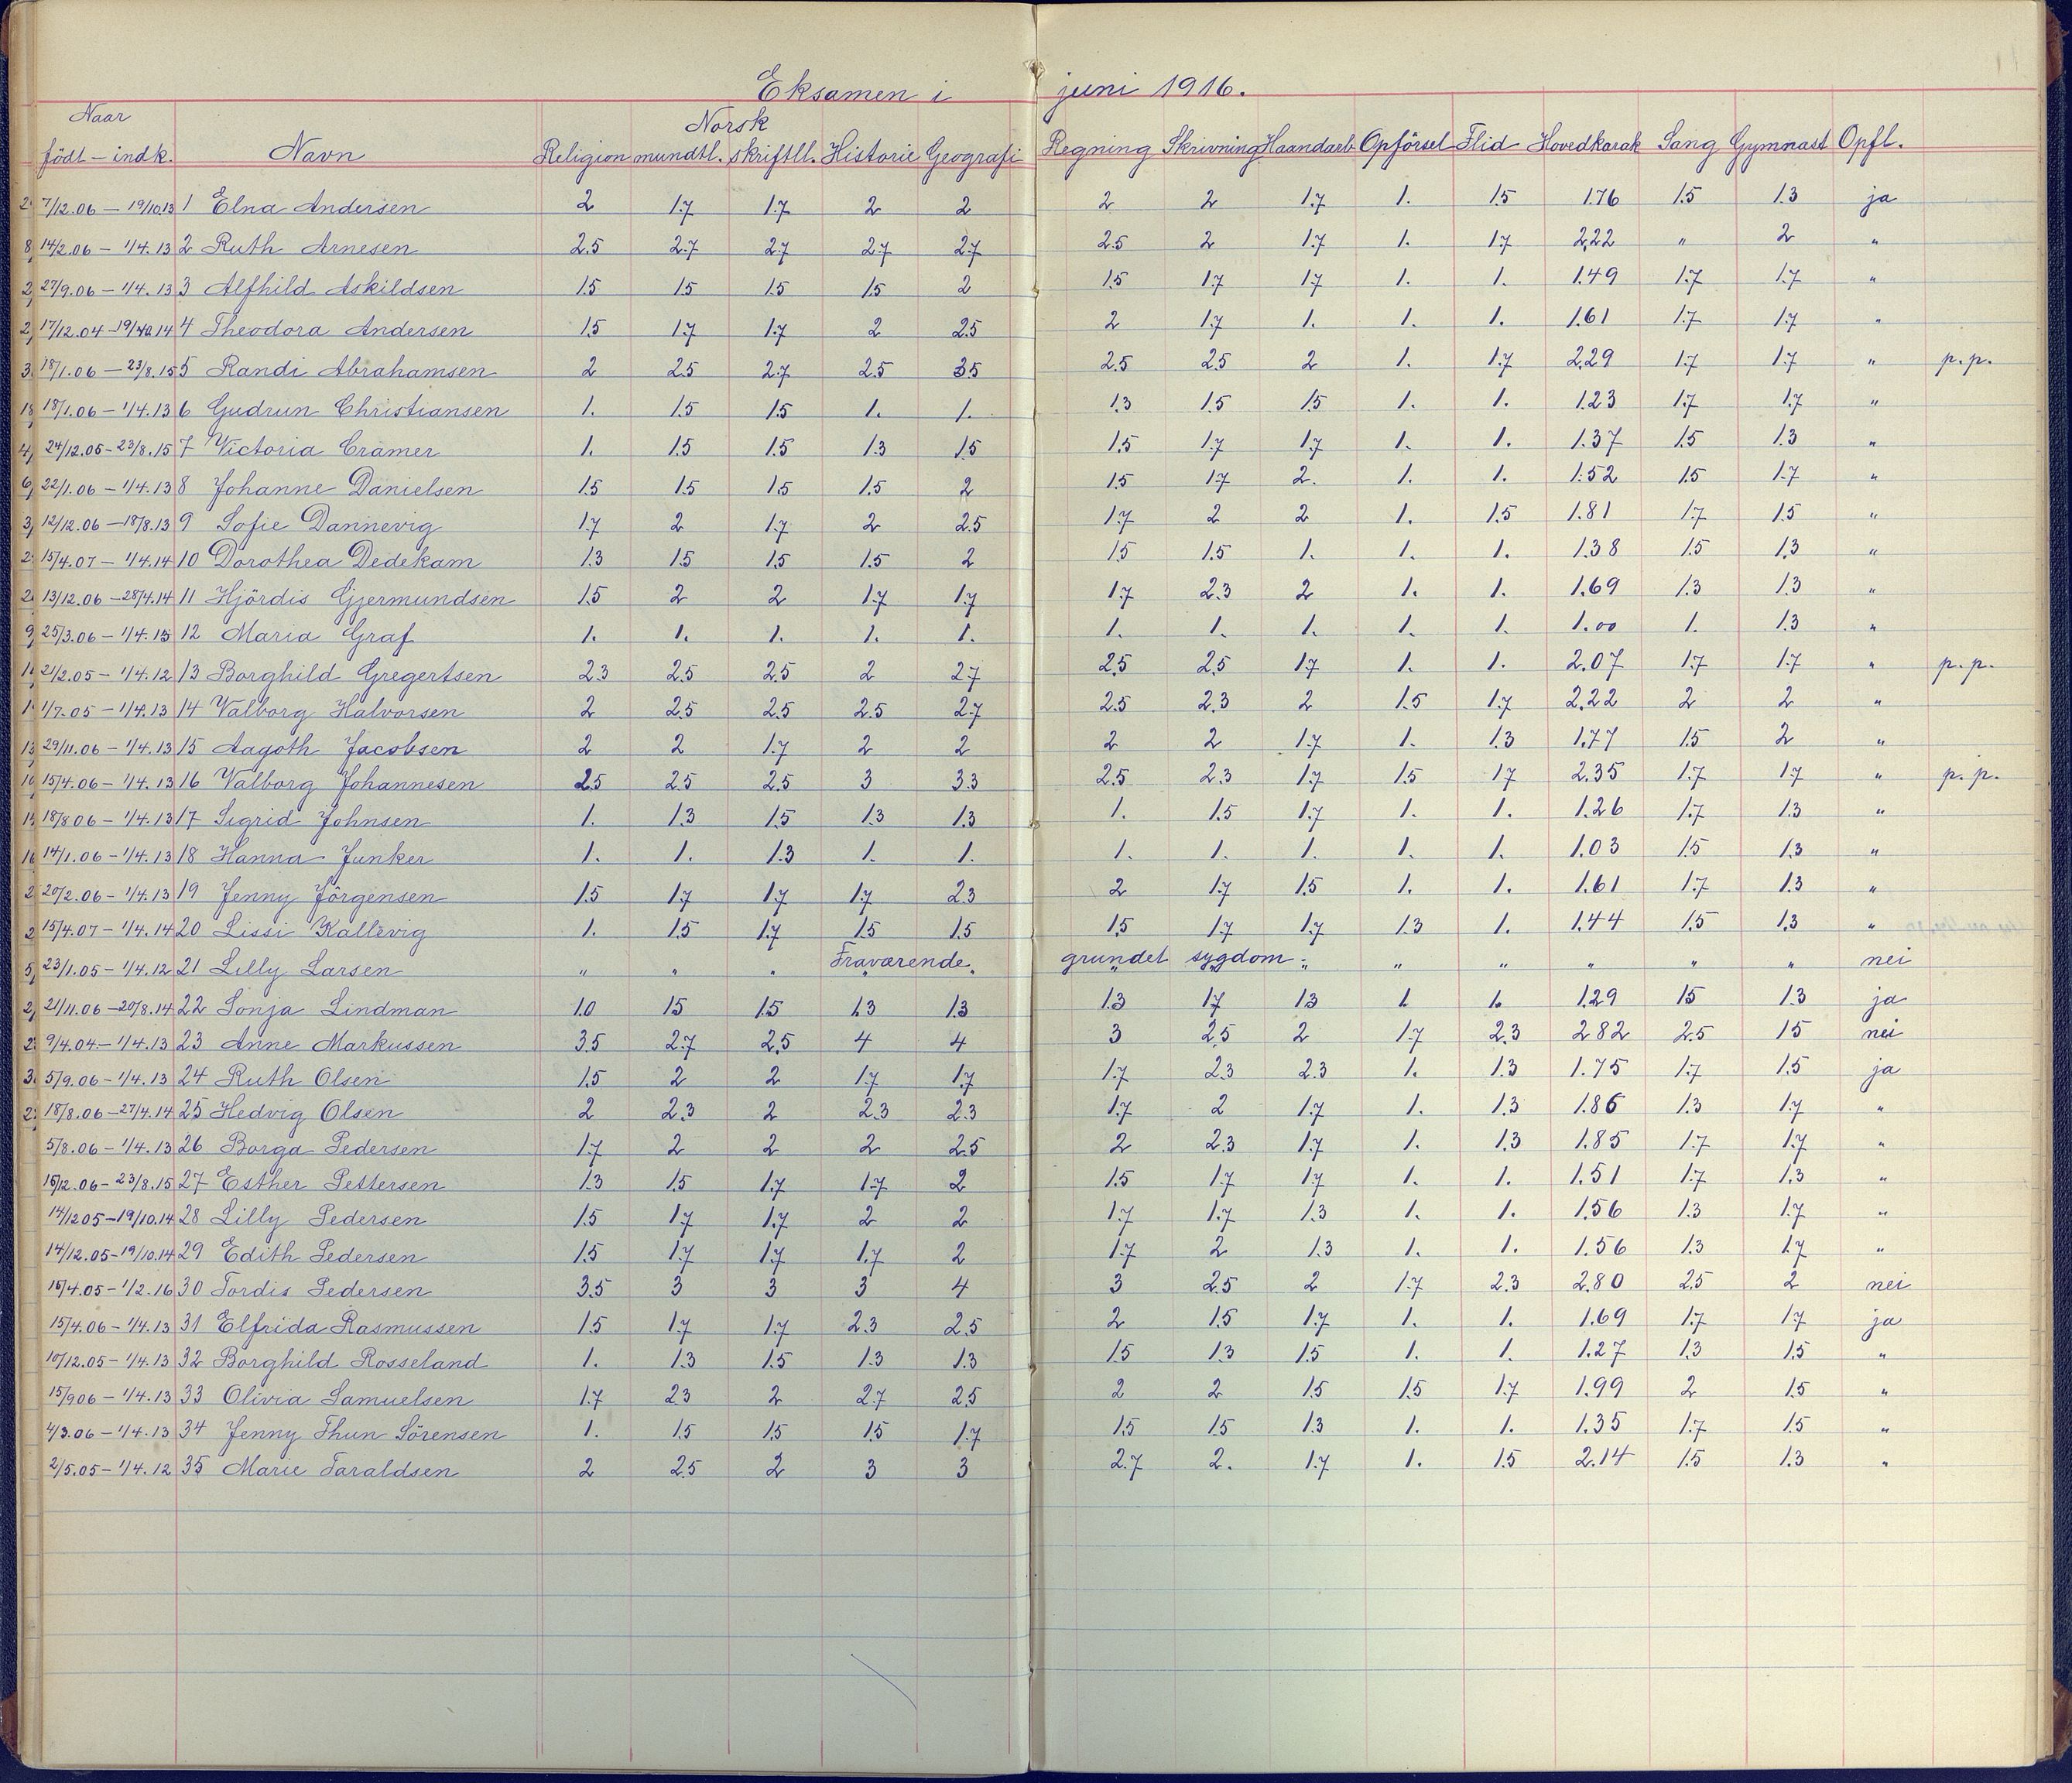 Eksamen i juni 1916.
Naar
Norsk
födt - indk. Navn Religion mundtl. skriftll. Historie Geografi Regning Skrivning Haandarb Opförsel Flid Hovedkarak Sang Gymnast Opfl.
7/12.06 - 19/10.13 1 Elna Andersen 2 1.7 1.7 2 2 2 2 1.7 1. 1.5 1.76 1.5 1.3 ja
14/2.06 - 1/4.13 2 Ruth Arnesen 2.5 2.7 2.7 2.7 2.7 2.5 2 1.7 1. 1.7 2.22 " 2 "
27/9.06 - 1/4.13 3 Alfhild Askildsen 1.5 1.5 1.5 1.5 2 1.5 1.7 1.7 1. 1. 1.49 1.7 1.7 "
17/12.04 - 19/10.14 4 Theodora Andersen 1.5 1.7 1.7 2 2.5 2 1.7 1. 1. 1. 1.61 1.7 1.7 "
18/1.06 - 23/8.15 5 Randi Abrahamsen 2 2.5 2.7 2.5 3.5 2.5 2.5 2 1. 1.7 2.29 1.7 1.7 " p.p.
18/1.06 - 1/4.13 6 Gudrun Christiansen 1. 1.5 1.5 1. 1. 1.3 1.5 1.5 1. 1. 1.23 1.7 1.7 "
24/12.05 - 23/8.15 7 Victoria Cramer 1. 1.5 1.5 1.3 1.5 1.5 1.7 1.7 1. 1. 1.37 1.5 1.3 "
22/1.06 - 1/4.13 8 Johanne Danielsen 1.5 1.5 1.5 1.5 2 1.5 1.7 2. 1. 1. 1.52 1.5 1.7 "
12/12.06 - 18/8.13 9 Sofie Dannevig 1.7 2 1.7 2 2.5 1.7 2 2 1. 1.5 1.81 1.7 1.5 "
15/4.07 - 1/4.14 10 Dorothea Dedekam 1.3 1.5 1.5 1.5 2 1.5 1.5 1. 1. 1. 1.38 1.5 1.3 "
13/12.06 - 28/4.14 11 Hjördis Gjermundsen 1.5 2 2 1.7 1.7 1.7 2.3 2 1. 1. 1.69 1.3 1.3 "
25/3.06 - 1/4.13 12 Maria Graf 1. 1. 1. 1. 1. 1. 1. 1. 1. 1. 1.00 1. 1.3 "
21/2.05 - 1/4.12 13 Borghild Gregertsen 2.3 2.5 2.5 2 2.7 2.5 2.5 1.7 1. 1. 2.07 1.7 1.7 " p.p.
1/7.05 - 1/4.13 14 Valborg Halvorsen 2 2.5 2.5 2.5 2.7 2.5 2.3 2 1.5 1.7 2.22 2 2 "
29/11.06 - 1/4.13 15 Aagoth Jacobsen 2 2 1.7 2 2 2 2 1.7 1. 1.3 1.77 1.5 2 "
15/4.06 - 1/4.13 16 Valborg Johannesen 2.5 2.5 2.5 3 3.3 2.5 2.3 1.7 1.5 1.7 2.35 1.7 1.7 " p.p.
18/8 06 - 1/4.13 17 Sigrid Johnsen 1. 1.3 1.5 1.3 1.3 1. 1.5 1.7 1. 1. 1.26 1.7 1.3 "
14/1.06 - 1/4.13 18 Hanna Junker 1. 1. 1.3 1. 1. 1. 1. 1. 1. 1. 1.03 1.5 1.3 "
20/2.06 - 1/4.13 19 Jenny Jörgensen 1.5 1.7 1.7 1.7 2.3 2 1.7 1.5 1. 1. 1.61 1.7 1.3 "
15/4.07 - 1/4.14 20 Lissi Kallevig 1. 1.5 1.7 1.5 1.5 1.5 1.7 1.7 1.3 1. 1.44 1.5 1.3 "
23/1.05 - 1/4.12 21 Lilly Larsen " " " Fraværende grundet sygdom " " " " " " nei
21/11.06 - 20/8.14 22 Sonja Lindman 1.0 1.5 1.5 1.3 1.3 1.3 1.7 1.3 1 1. 1.29 1.5 1.3 ja
9/4.04 - 1/4.13 23 Anne Markussen 3.5 2.7 2.5 4 4 3 2.5 2 1.7 2.3 2.82 2.5 1.5 nei
5/9.06 - 1/4.13 24 Ruth Olsen 1.5 2 2 1.7 1.7 1.7 2.3 2.3 1. 1.3 1.75 1.7 1.5 ja
18/8.06 - 27/4.14 25 Hedvig Olsen 2 2.3 2 2.3 2.3 1.7 2 1.7 1. 1.3 1.86 1.3 1.7 "
5/8.06 - 1/4.13 26 Borga Pedersen 1.7 2 2 2 2.5 2 2.3 1.7 1. 1.3 1.85 1.7 1.7 "
16/12.06 - 23/8.15 27 Esther Pettersen 1.3 1.5 1.7 1.7 2 1.5 1.7 1.7 1. 1. 1.51 1.7 1.3 "
14/12 05 - 19/10.14 28 Lilly Pedersen 1.5 1.7 1.7 2 2 1.7 1.7 1.3 1. 1. 1.56 1.3 1.7 "
14/12.05 - 19/10.14 29 Edith Pedersen 1.5 1.7 1.7 1.7 2 1.7 2 1.3 1. 1. 1.56 1.3 1.7 "
15/4.05 - 1/2.16 30 Tordis Pedersen 3.5 3 3 3 4 3 2.5 2 1.7 2.3 2.80 2.5 2 nei
15/4.06 - 1/4.13 31 Elfrida Rasmussen 1.5 1.7 1.7 2.3 2.5 2 1.5 1.7 1. 1. 1.69 1.7 1.7 ja
10/12.05 - 1/4.13 32 Borghild Rosseland 1. 1.3 1.5 1.3 1.3 1.5 1.3 1.5 1. 1. 1.27 1.3 1.5 "
15/9 06 - 1/4.13 33 Olivia Samuelsen 1.7 2.3 2 2.7 2.5 2 2 1.5 1.5 1.7 1.99 2 1.5 "
4/3.06 - 1/4.13 34 Jenny Thun Sörensen 1. 1.5 1.5 1.5 1.7 1.5 1.5 1.3 1. 1. 1.35 1.7 1.5 "
2/5.05 - 1/4.12 35 Marie Taraldsen 2 2.5 2 3 3 2.7 2. 1.7 1. 1.5 2.14 1.5 1.3 "